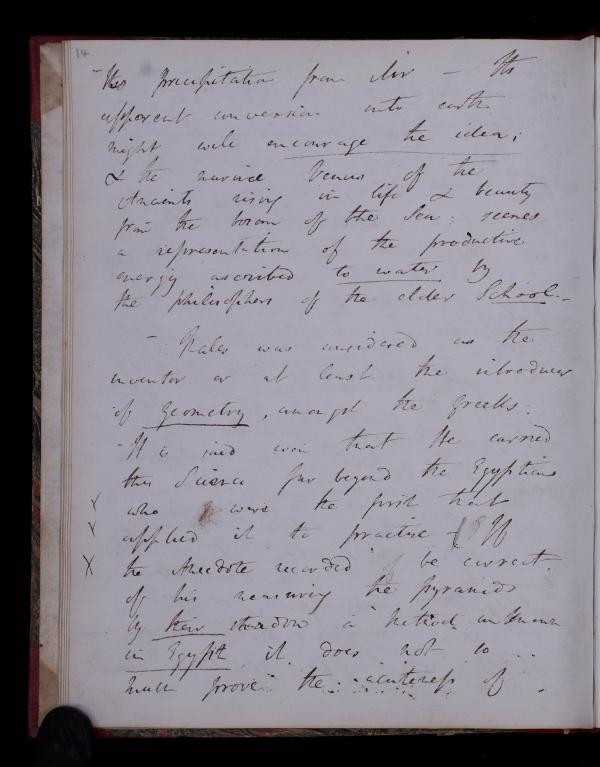 14
"Its precipitation from Air – Its
apparent conversion into earth
might well encourage the idea;
& the marine Venus of the
Ancients rising in life & beauty
from the bosom of the Sea; seems
a representation of the productive
energy ascribed to water by
the philosophers of the elder School. –
– Thales was considered as the
inventor or at least the introducer
of geometry, amongst the Greeks.
It is said even that He carried
this Science far beyond the Egyptians
who were the first that
applied it to practise – If
the Anecdote recorded be correct.
of his measuring the pyramids
by their shadow a method unknown
in Egypt it does not so
much prove the acuteness of